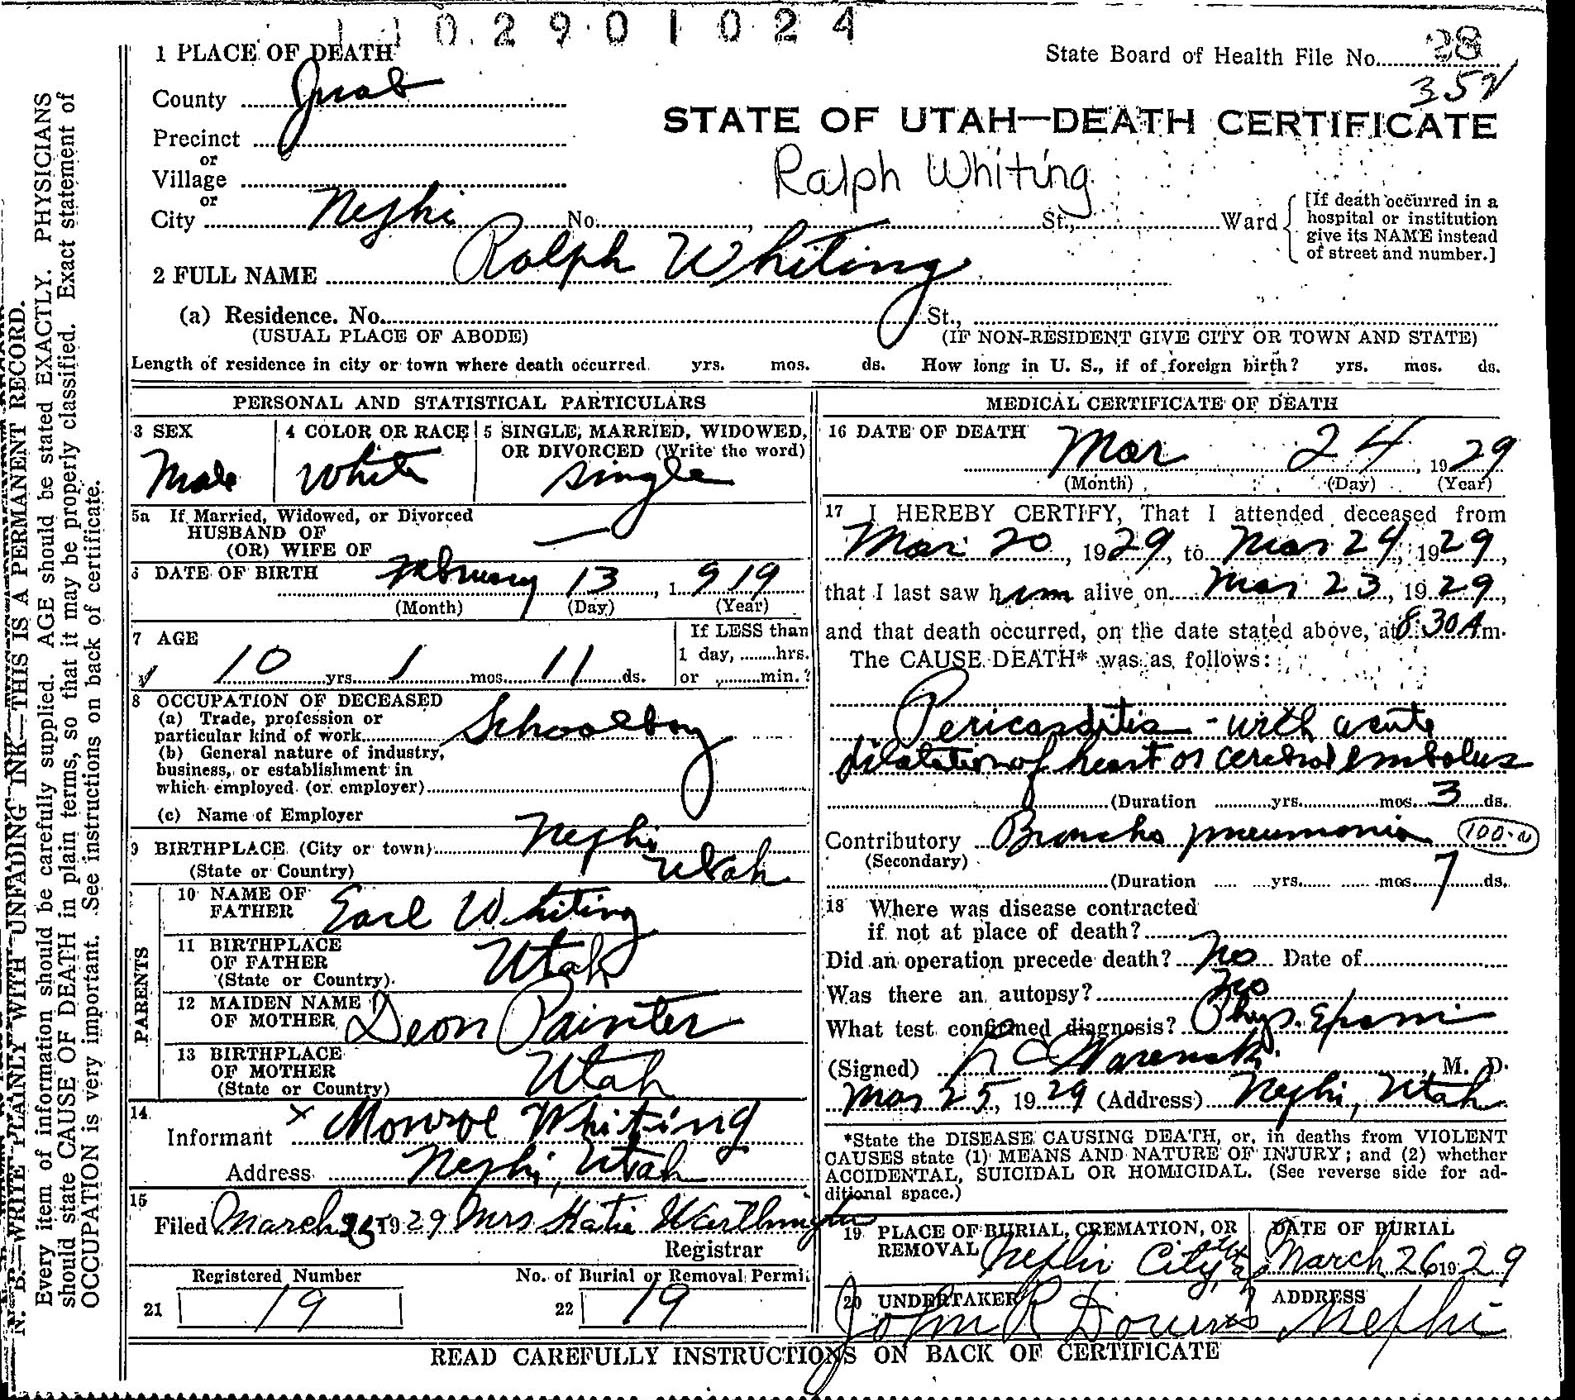 1 0 2 9 0 1 0 2 4
1 PLACE OF DEATH
State Board of Health File No. 28
352
County Juab
STATE OF UTAH—DEATH CERTIFICATE
Precinct
or
Village
Ralph Whiting
or
City Nephi No. , St., Ward [If death occurred in a hospital or institution give its NAME instead of street and number.]
2 FULL NAME Ralph Whiting
(a) Residence. No. St.,
(USUAL PLACE OF ABODE) (IF NON-RESIDENT GIVE CITY OR TOWN AND STATE)
Length of residence in city or town where death occurred yrs. mos. ds. How long in U. S., if of foreign birth? yrs. mos. ds.
PERSONAL AND STATISTICAL PARTICULARS
3 SEX 4 COLOR OR RACE 5 SINGLE, MARRIED, WIDOWED,
OR DIVORCED (Write the word)
Male White Single
5a If Married, Widowed, or Divorced
HUSBAND OF
(OR) WIFE OF —
6 DATE OF BIRTH February 13, 1919
(Month) (Day) (Year)
7 AGE If LESS than
1 day, hrs.
10 yrs. 1 mos. 11 ds. or min.?
8 OCCUPATION OF DECEASED
(a) Trade, profession or
particular kind of work Schoolboy
(b) General nature of industry,
business, or establishment in
which employed (or employer)
(c) Name of Employer
9 BIRTHPLACE (City or town) Nephi
(State or Country) Utah
PARENTS
10 NAME OF
FATHER Earl Whiting
11 BIRTHPLACE
OF FATHER Utah
(State or Country)
12 MAIDEN NAME
OF MOTHER Deon Painter
13 BIRTHPLACE
OF MOTHER Utah
(State or Country)
14
Informant x Monroe Whiting
Address Nephi, Utah
15
Filed March 25 1929 Mrs Katie Worthington
Registrar
Registered Number No. of Burial or Removal Permi
21 19 22 19
MEDICAL CERTIFICATE OF DEATH
16 DATE OF DEATH Mar 24, 1929
(Month) (Day) (Year)
17 I HEREBY CERTIFY, That I attended deceased from
Mar 20, 1929, to Mar 24, 1929,
that I last saw him alive on Mar 23, 1929,
and that death occurred, on the date stated above, at 8:30 A m.
The CAUSE DEATH* was as follows:
Pericarditis - with acute
dilatation of heart or cerebral embolus
(Duration yrs. mos. 3 ds.
Contributory Broncho pneumonia 100-a
(Secondary)
(Duration yrs. mos. 7 ds.
18 Where was disease contracted
if not at place of death?
Did an operation precede death? No Date of
Was there an autopsy? No
What test confirmed diagnosis? Phys.
(Signed) , M. D.
Mar 25, 1929 (Address) Nephi, Utah
*State the DISEASE CAUSING DEATH, or, in deaths from VIOLENT
CAUSES state (1) MEANS AND NATURE OF INJURY; and (2) whether
ACCIDENTAL, SUICIDAL OR HOMICIDAL. (See reverse side for ad-
ditional space.)
19 PLACE OF BURIAL, CREMATION, OR DATE OF BURIAL
REMOVAL Nephi City, March 26 1929
20 UNDERTAKER ADDRESS
John R Downs Nephi
READ CAREFULLY INSTRUCTIONS ON BACK OF CERTIFICATE
N. B.—WRITE PLAINLY WITH UNFADING INK—THIS IS A PERMANENT RECORD.
Every item of information should be carefully supplied. AGE should be stated EXACTLY. PHYSICIANS
should state CAUSE OF DEATH in plain terms, so that it may be properly classified. Exact statement of
OCCUPATION is very important. See instructions on back of certificate.